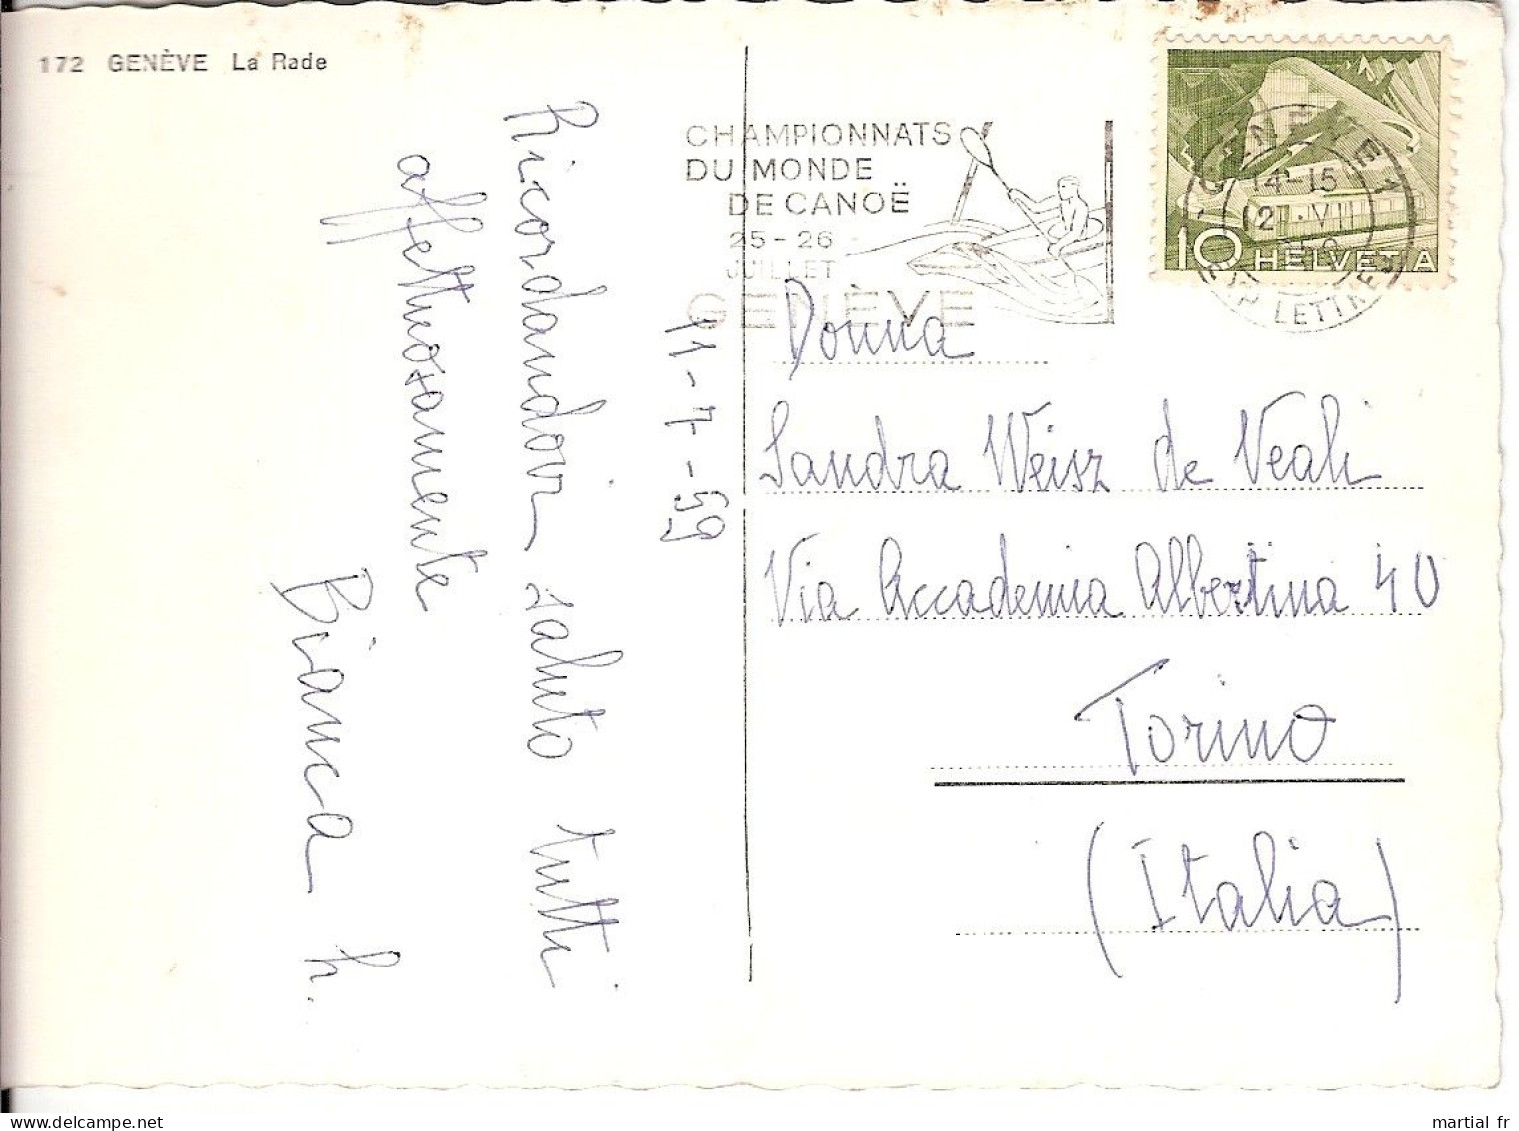 172 GENÈVE La Rade
CHAMPIONNATS
DU MONDE
DE CANOË
25-26
JUILLET
GENÈVE
10 HELVETIA
GENÈVE 1
14-15
12. VII
EXP. LETTRES
11-7-59
Ricordandovi saluto tutti
affettuosamente
Bianca h.
Donna
Sandra Weisz de Veali
Via Accademia Albertina 40
Torino
(Italia)
martial fr
delcampe.net